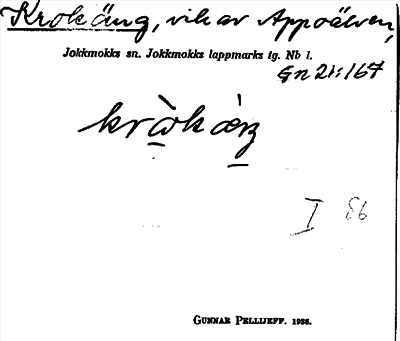 Krokäng, vik av Appoälven,
Jokkmokks sn. Jokkmokks lappmarks tg. Nb l.
Gn 21:167
I 86
GUNNAR PELLIJEFF. 1938.